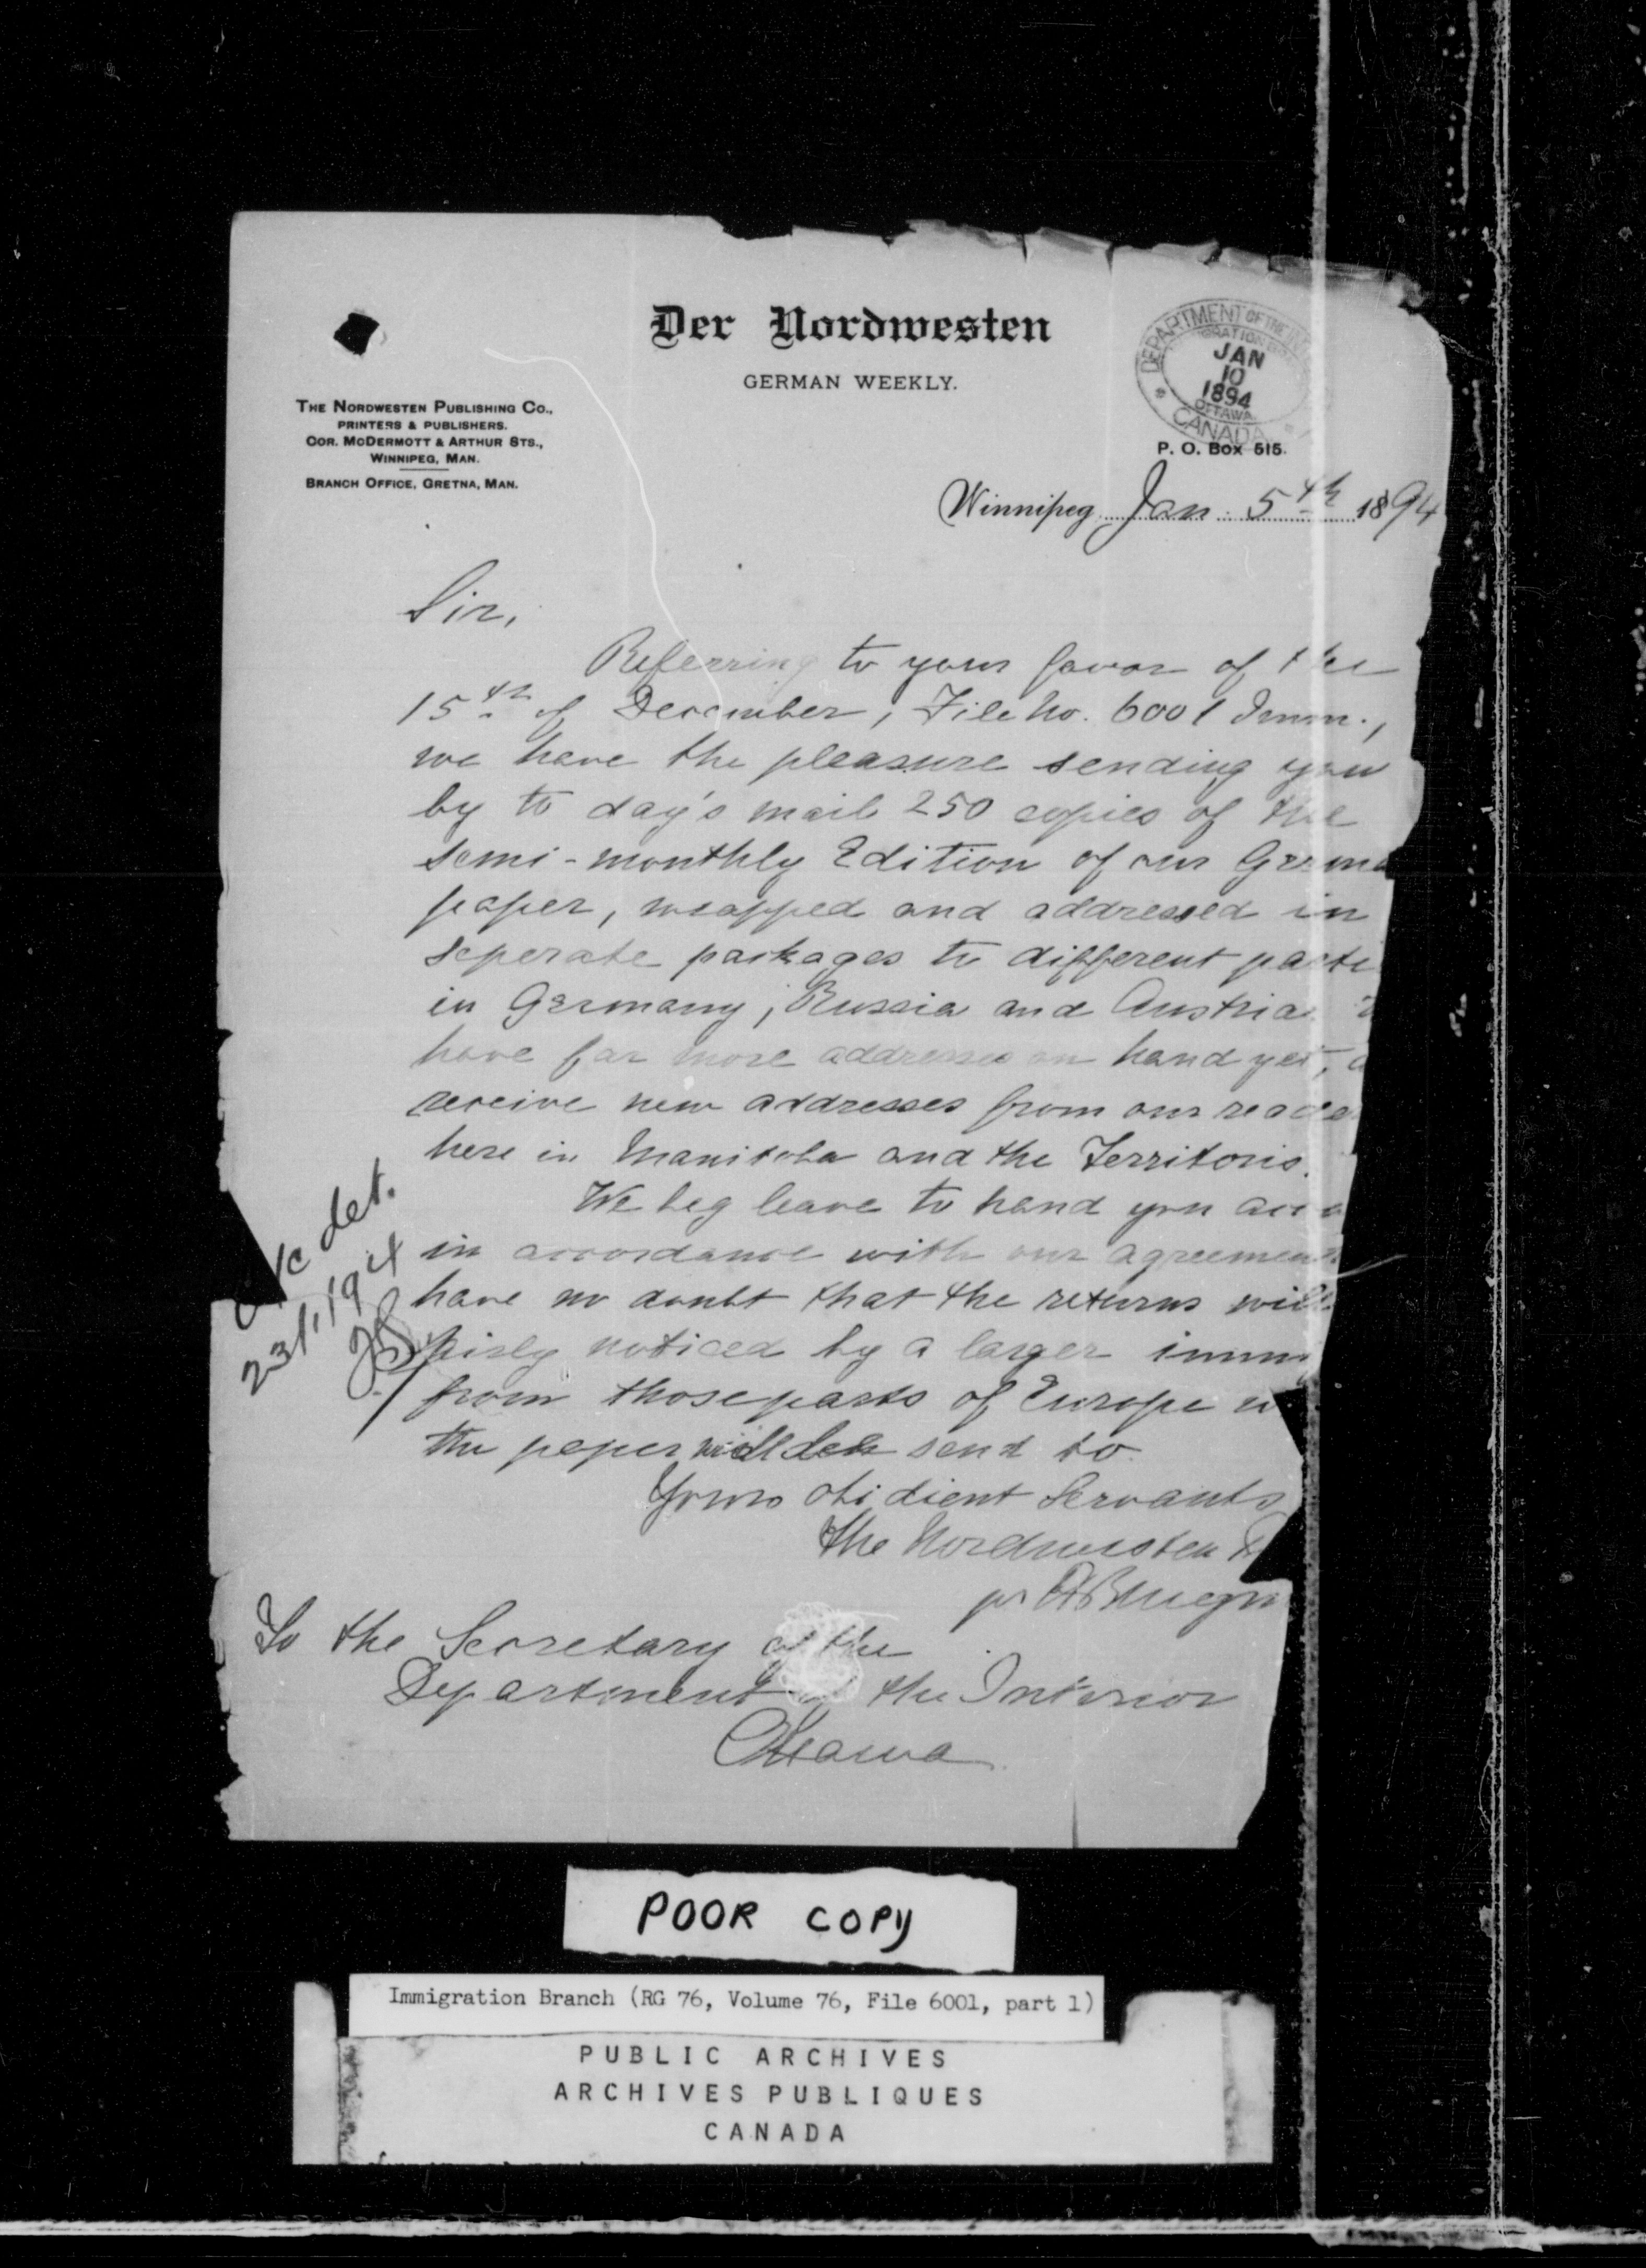 Der Nordwesten
GERMAN WEEKLY.
THE NORDWESTEN PUBLISHING CO.,
PRINTERS & PUBLISHERS.
COR. MCDERMOTT & ARTHUR STS.,
WINNIPEG, MAN.
BRANCH OFFICE, GRETNA, MAN.
DEPARTMENT OF THE
JAN
10
1894
OTTAWA
CANADA
P. O. BOX 515.
Winnipeg Jan. 5th 1894
Sir,
Referring to your favor of the
15th of December, File No. 6001 Imm.,
we have the pleasure sending you
by to day's mail 250 copies of the
semi-monthly Edition of our Germa
paper, wrapped and addressed in
seperate packages to different parti
in Germany, Russia and Austria.
have far more addresses on hand yet,
receive new addresses from our reade
here in Manitoba and the Territoris.
We beg leave to hand you
in accordance with our agreement
have no doubt that the returns will
noticed by a larger imm
from those parts of Europe
the paper will be send to.
Yours obidient Servants
The Nordwesten
pr
To the Secretary of the
Department the Interior
Ottawa
let.
23/1/94
POOR COPY
Immigration Branch (RG 76, Volume 76, File 6001, part 1)
PUBLIC ARCHIVES
ARCHIVES PUBLIQUES
CANADA